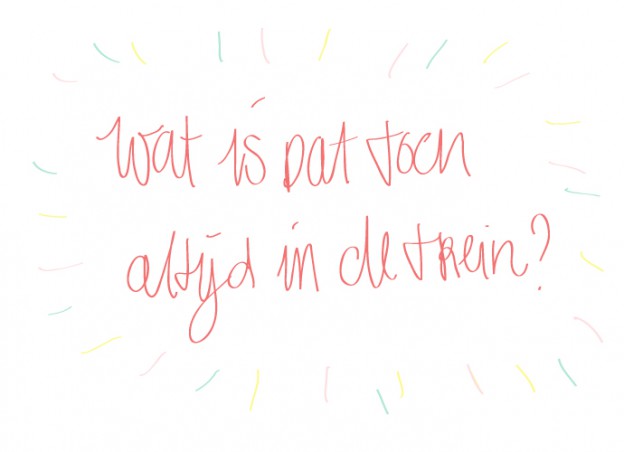 Wat is dat toch
altijd in de trein?